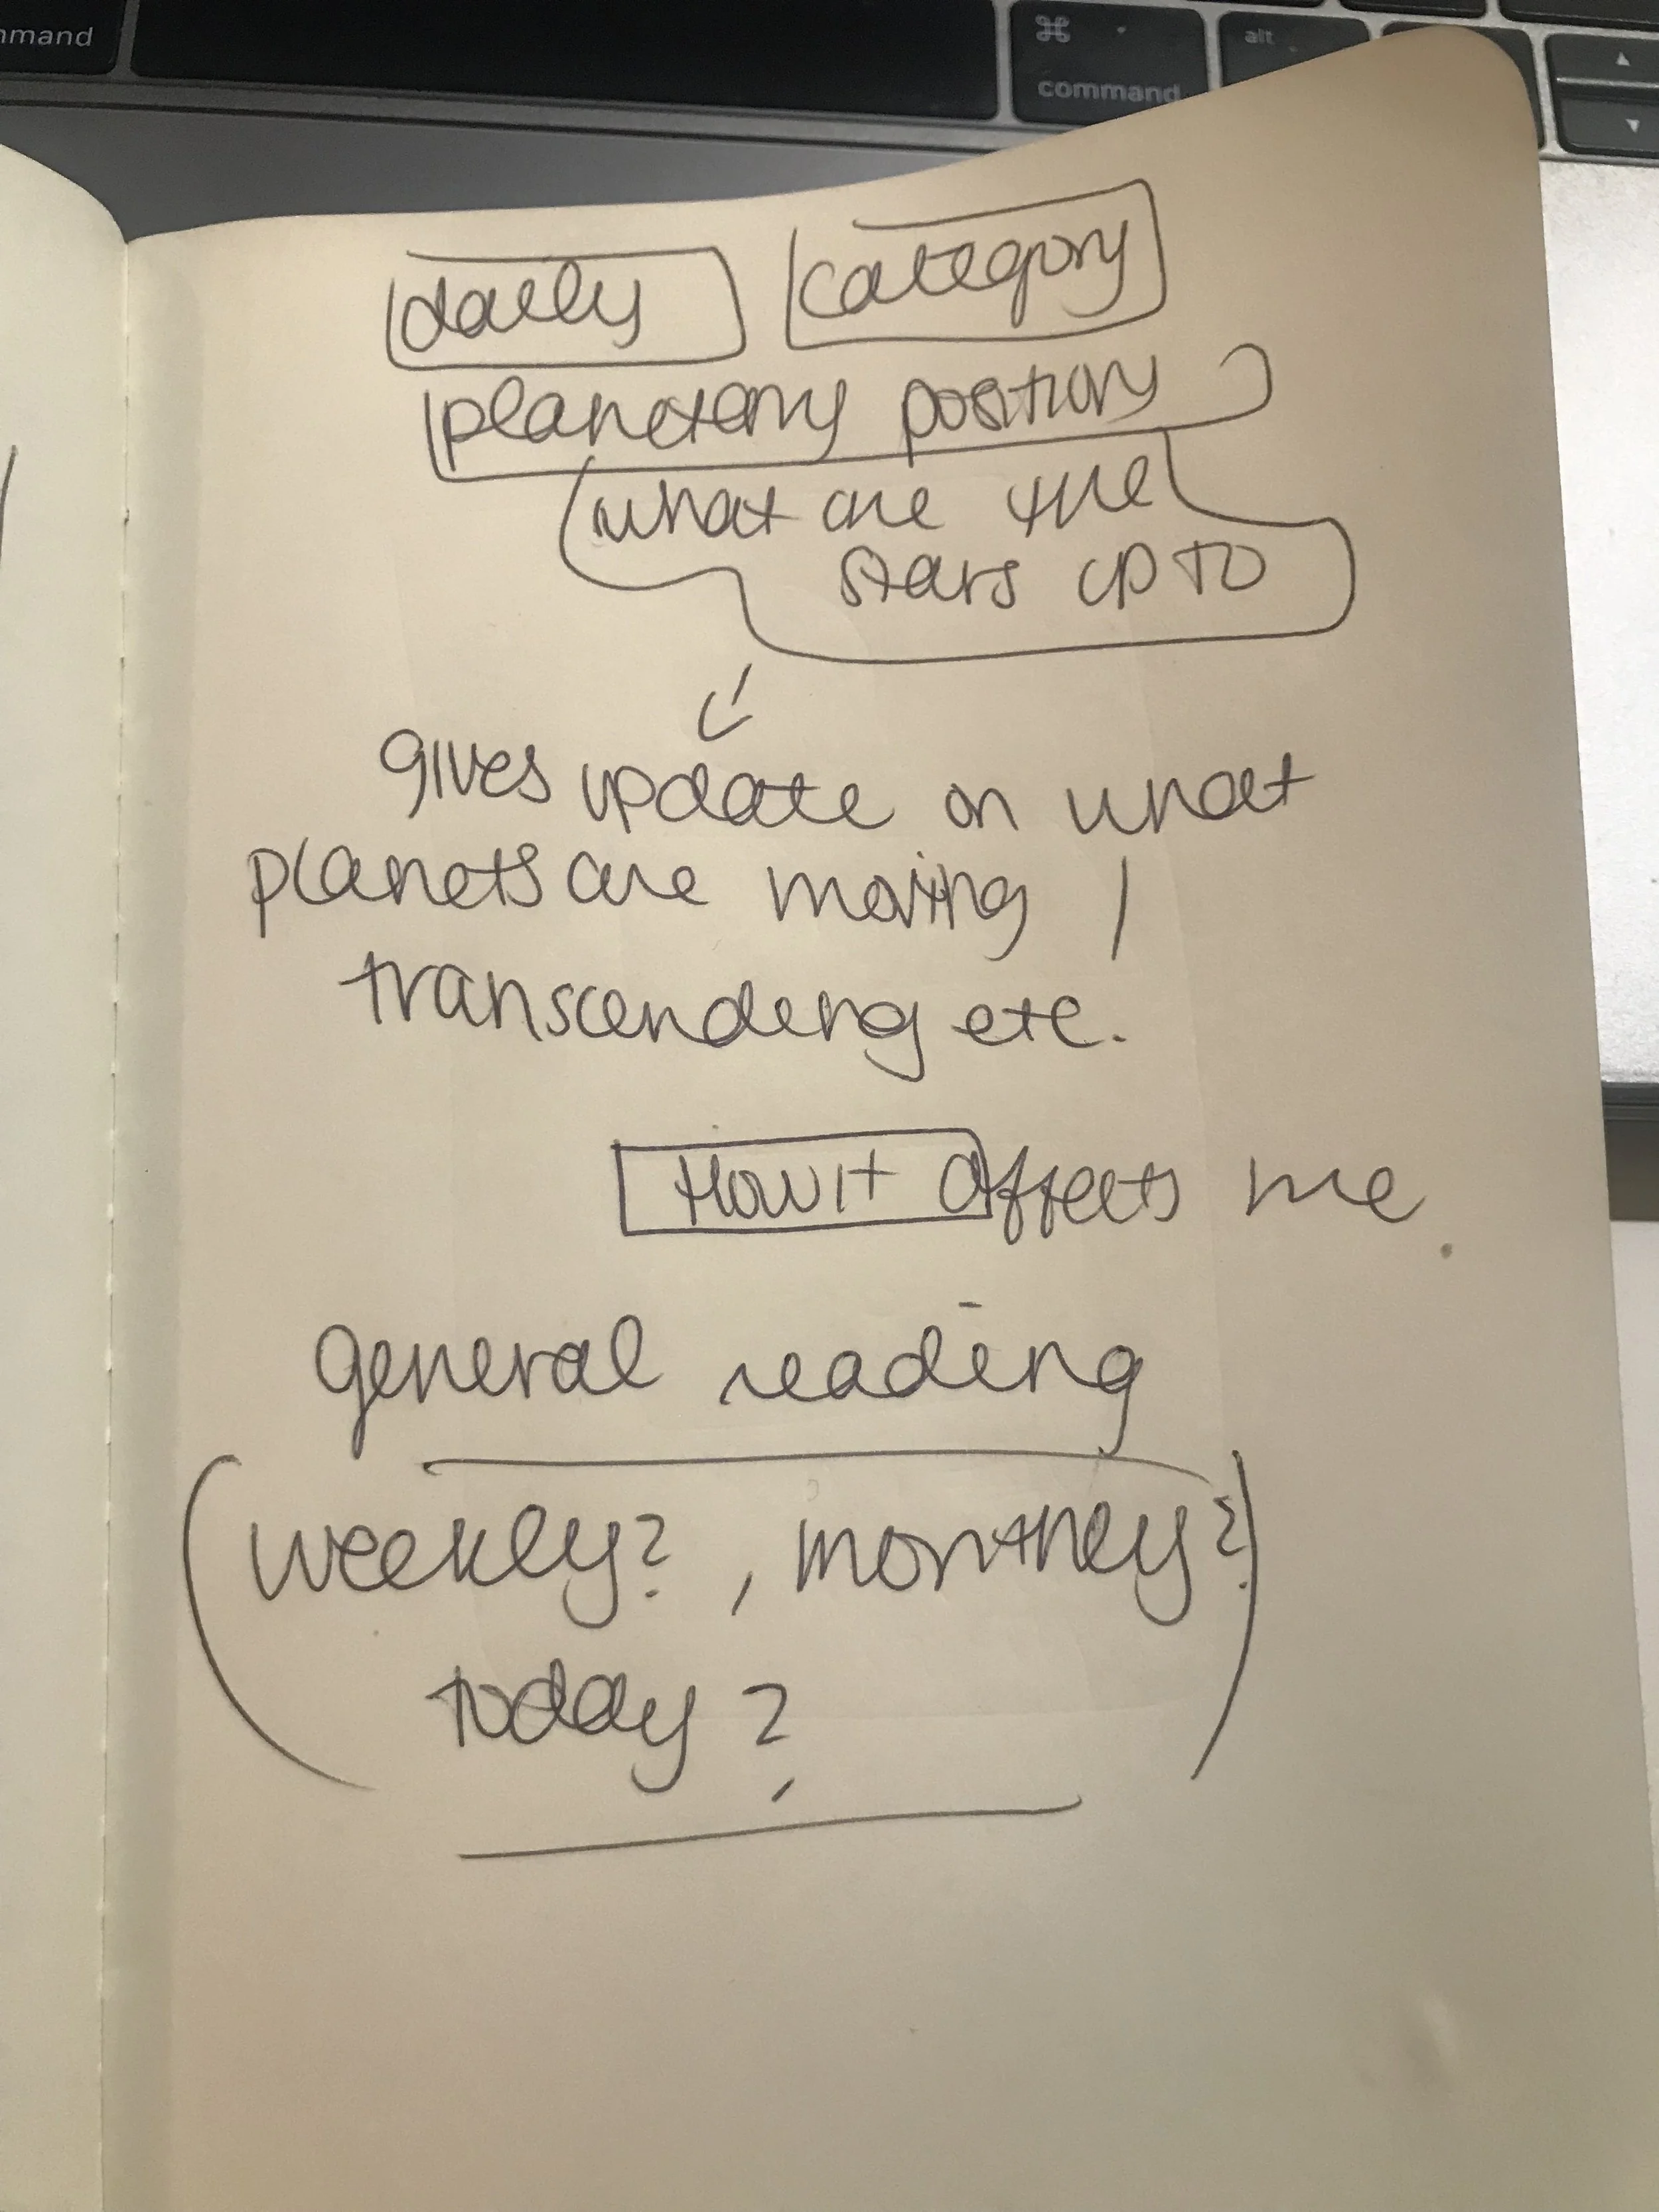 mmand
⌘
command
alt
▲
▼
daily category
planetary position
what are the
stars up to
gives update on what
planets are moving /
transcending etc.
How it affects me
general reading
(weekly?, monthly?
today?)